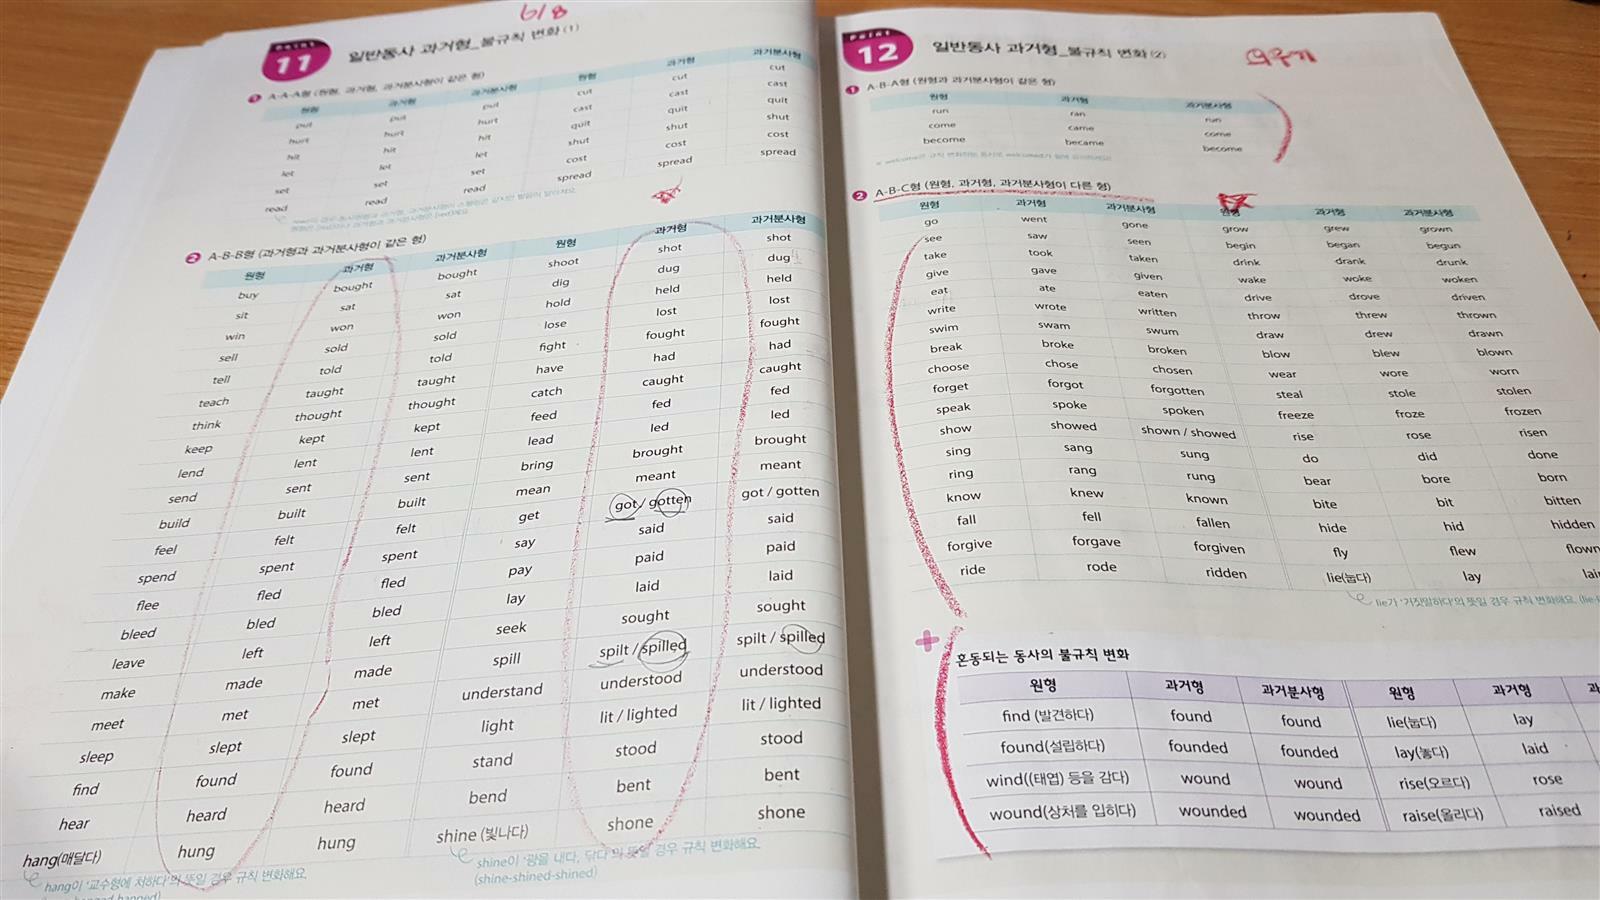 6/8
Point 11 일반동사 과거형_불규칙 변화 (1)
1 A-A-A형 (원형, 과거형, 과거분사형이 같은 형)
원형 과거형 과거분사형 원형 과거형 과거분사형
put put put cut cut cut
hurt hurt hurt cast cast cast
hit hit hit quit quit quit
let let let shut shut shut
set set set cost cost cost
read read read spread spread spread
2 A-B-B형 (과거형과 과거분사형이 같은 형)
원형 과거형 과거분사형 원형 과거형 과거분사형
buy bought bought shoot shot shot
sit sat sat dig dug dug
win won won hold held held
sell sold sold lose lost lost
tell told told fight fought fought
teach taught taught have had had
think thought thought catch caught caught
keep kept kept feed fed fed
lend lent lent lead led led
send sent sent bring brought brought
build built built mean meant meant
feel felt felt get got / gotten got / gotten
spend spent spent say said said
flee fled fled pay paid paid
bleed bled bled lay laid laid
leave left left seek sought sought
make made made spill spilt / spilled spilt / spilled
meet met met understand understood understood
sleep slept slept light lit / lighted lit / lighted
find found found stand stood stood
hear heard heard bend bent bent
hang(매달다) hung hung shine (빛나다) shone shone
hang이 '교수형에 처하다'의 뜻일 경우 규칙 변화해요.
shine이 '광을 내다, 닦다'의 뜻일 경우 규칙 변화해요.
(shine-shined-shined)
Point 12 일반동사 과거형_불규칙 변화 (2)
외우기
1 A-B-A형 (원형과 과거분사형이 같은 형)
원형 과거형 과거분사형
run ran run
come came come
become became become
2 A-B-C형 (원형, 과거형, 과거분사형이 다른 형)
원형 과거형 과거분사형 원형 과거형 과거분사형
go went gone grow grew grown
see saw seen begin began begun
take took taken drink drank drunk
give gave given wake woke woken
eat ate eaten drive drove driven
write wrote written throw threw thrown
swim swam swum draw drew drawn
break broke broken blow blew blown
choose chose chosen wear wore worn
forget forgot forgotten steal stole stolen
speak spoke spoken freeze froze frozen
show showed shown / showed rise rose risen
sing sang sung do did done
ring rang rung bear bore born
know knew known bite bit bitten
fall fell fallen hide hid hidden
forgive forgave forgiven fly flew flown
ride rode ridden lie(눕다) lay
lie가 '거짓말하다'의 뜻일 경우 규칙 변화해요.
혼동되는 동사의 불규칙 변화
원형 과거형 과거분사형 원형 과거형
find (발견하다) found found lie(눕다) lay
found(설립하다) founded founded lay(놓다) laid
wind((태엽) 등을 감다) wound wound rise(오르다) rose
wound(상처를 입히다) wounded wounded raise(올리다) raised